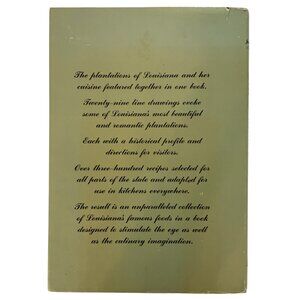 The plantations of Louisiana and her
cuisine featured together in one book.
Twenty-nine line drawings evoke
some of Louisiana's most beautiful
and romantic plantations.
Each with a historical profile and
directions for visitors.
Over three-hundred recipes selected for
all parts of the state and adapted for
use in kitchens everywhere.
The result is an unparalleled collection
of Louisiana's famous foods in a book
designed to stimulate the eye as well
as the culinary imagination.